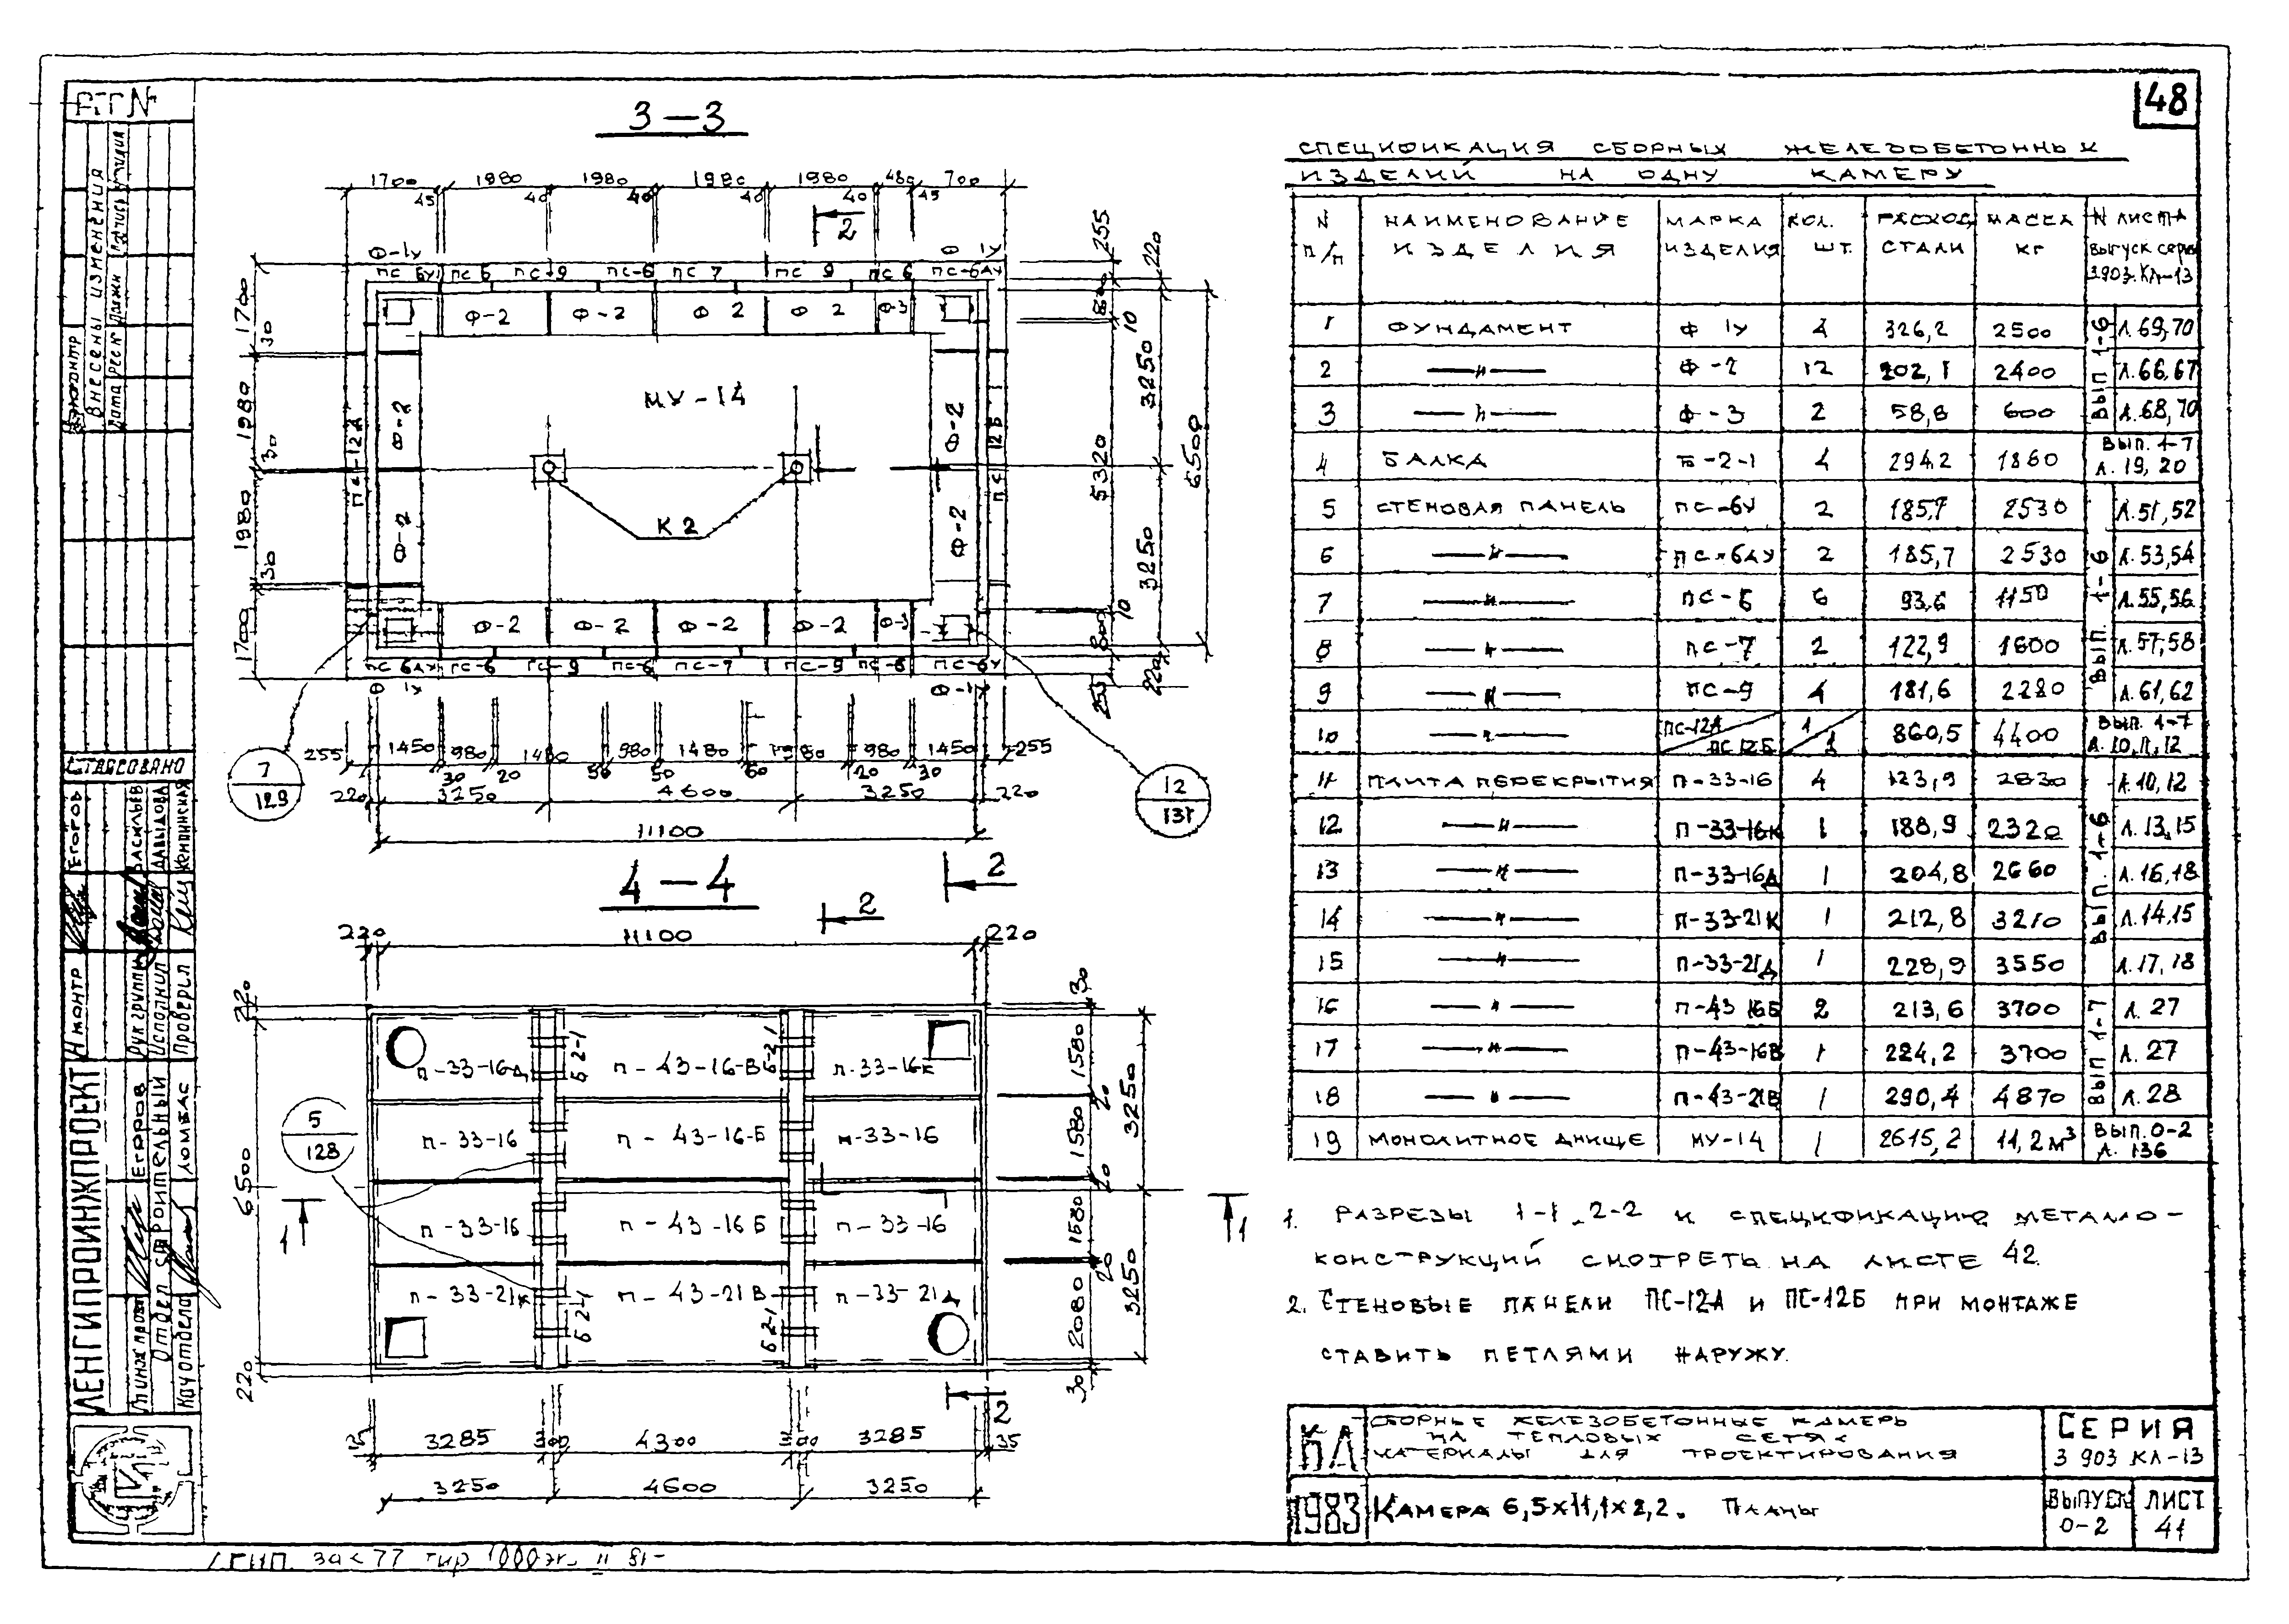 48
3-3
1700 1980 1980 1980 1980 480 700
45 40 40 40 40 45
2
Ф-1У Ф 1У
ПС 6У ПС 6 ПС-9 ПС-6 ПС 7 ПС 9 ПС 6 ПС-6АУ
Ф-2 Ф-2 Ф 2 Ф 2 Ф-3
МУ-14
К2
ПС-12А
Ф-2
Ф-2
Ф-2
Ф-2
ПС 12Б
Ф-2 Ф-2 Ф-2 Ф-2 Ф-3
ПС 6АУ ПС-6 ПС-9 ПС-6 ПС-7 ПС-9 ПС-6 ПС-6У
Ф 1У Ф-1У
1700
30
1980
30
1980
30
1700
255
220
800
10
3250
5320
6500
3250
10
800
220
255
255 1450 980 1480 980 1480 1980 980 1450 255
30 20 50 50 60 20 30
220 3250 4600 3250 220
11100
7
129
12
131
4-4
2
2
220 11100 220
П-33-16Д П-43-16-В П-33-16К
П-33-16 П-43-16-Б П-33-16
П-33-16 П-43-16Б П-33-16
П-33-21К П-43-21В П-33-21Д
Б 2-1
Б-2-1
Б 2-1
Б 2-1
5
128
220
6500
220
1
1
30
1580
20
1580
20
1580
20
2080
30
3250
3250
2
35 3285 300 4300 300 3285 35
3250 4600 3250
СПЕЦИФИКАЦИЯ СБОРНЫХ ЖЕЛЕЗОБЕТОННЫХ
ИЗДЕЛИЙ НА ОДНУ КАМЕРУ
N НАИМЕНОВАНИЕ МАРКА КОЛ. РАСХОД МАССА N ЛИСТА
П/П ИЗДЕЛИЯ ИЗДЕЛИЯ ШТ. СТАЛИ КГ ВЫПУСК СЕРИИ
3903.КЛ-13
1 ФУНДАМЕНТ Ф 1У 4 326,2 2500 Л.69,70
2 —"— Ф-2 12 202,1 2400 Л.66,67
3 —"— Ф-3 2 58,8 600 Л.68,70
ВЫП 1-6
4 БАЛКА Б-2-1 4 294,2 1860 ВЫП. 1-7
Л. 19, 20
5 СТЕНОВАЯ ПАНЕЛЬ ПС-6У 2 185,7 2530 Л.51,52
6 —"— ПС-6АУ 2 185,7 2530 Л.53,54
7 —"— ПС-6 6 93,6 1150 Л.55,56
8 —"— ПС-7 2 122,9 1600 Л.57,58
9 —"— ПС-9 4 181,6 2280 Л.61,62
ВЫП. 1-6
10 —"— ПС-12А/ПС 12Б 1/1 860,5 4400 ВЫП. 1-7
Л. 10,11,12
11 ПЛИТА ПЕРЕКРЫТИЯ П-33-16 4 123,9 2830 Л.10,12
12 —"— П-33-16К 1 188,9 2320 Л.13,15
13 —"— П-33-16Д 1 204,8 2660 Л.16,18
14 —"— П-33-21К 1 212,8 3210 Л.14,15
15 —"— П-33-21Д 1 228,9 3550 Л.17,18
ВЫП. 1-6
16 —"— П-43 16Б 2 213,6 3700 Л. 27
17 —"— П-43-16В 1 224,2 3700 Л. 27
18 —"— П-43-21В 1 290,4 4870 Л. 28
ВЫП 1-7
19 МОНОЛИТНОЕ ДНИЩЕ МУ-14 1 2615,2 11,2 м³ ВЫП. 0-2
Л. 136
1. РАЗРЕЗЫ 1-1, 2-2 И СПЕЦИФИКАЦИЮ МЕТАЛЛО-
КОНСТРУКЦИЙ СМОТРЕТЬ НА ЛИСТЕ 42.
2. СТЕНОВЫЕ ПАНЕЛИ ПС-12А И ПС-12Б ПРИ МОНТАЖЕ
СТАВИТЬ ПЕТЛЯМИ НАРУЖУ.
КЛ
1983
СБОРНЫЕ ЖЕЛЕЗОБЕТОННЫЕ КАМЕРЫ
НА ТЕПЛОВЫХ СЕТЯХ
МАТЕРИАЛЫ ДЛЯ ПРОЕКТИРОВАНИЯ
КАМЕРА 6,5×11,1×2,2. ПЛАНЫ
СЕРИЯ
3 903 КЛ-13
ВЫПУСК
0-2
ЛИСТ
41
ВНЕСЕНЫ ИЗМЕНЕНИЯ
СОГЛАСОВАНО
Н.КОНТР ЕГОРОВ
РУК ГРУППЫ ВАСИЛЬЕВ
ИСПОЛНИЛ ДАВЫДОВА
ПРОВЕРИЛ КЕПИНСКАЯ
ЛЕНГИПРОИНЖПРОЕКТ
ЕГОРОВ
ОТДЕЛ СТРОИТЕЛЬНЫЙ
НАЧ ОТДЕЛА ЛОМБАС